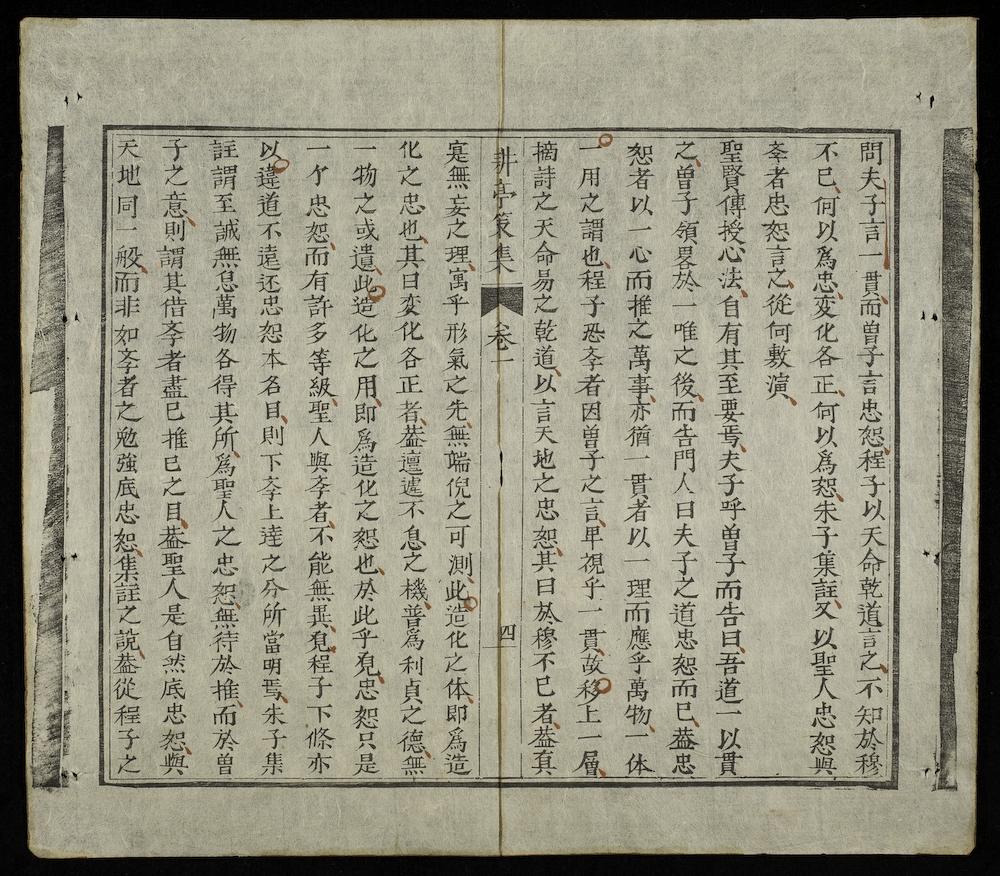 問夫子言一貫而曽子言忠恕程子以天命乾道言之不知於穆
不已何以爲忠変化各正何以爲恕朱子集註又以聖人忠恕與
斈者忠恕言之從何敷演
聖賢傳授心法自有其至要焉夫子呼曽子而告曰吾道一以貫
之曽子領畧於一唯之後而告門人曰夫子之道忠恕而已葢忠
恕者以一心而推之萬事亦猶一貫者以一理而應乎萬物一体
一用之謂也程子恐斈者因曽子之言卑視乎一貫故移上一層
摘詩之天命易之乾道以言天地之忠恕其曰於穆不已者葢真
耕亭策集 卷一 四
寔無妄之理寓乎形氣之先無端倪之可測此造化之体即爲造
化之忠也其曰变化各正者葢邅遽不息之機普爲利貞之德無
一物之或遺此造化之用即爲造化之恕也於此乎覔忠恕只是
一个忠恕而有許多等級聖人與斈者不能無異覔程子下條亦
以違道不遠还忠恕本名目則下斈上達之分所當明焉朱子集
註謂至誠無息萬物各得其所爲聖人之忠恕無待於推而於曽
子之意則謂其借斈者盡已推已之目葢聖人是自然底忠恕與
天地同一般而非如斈者之勉強底忠恕集註之說葢從程子之